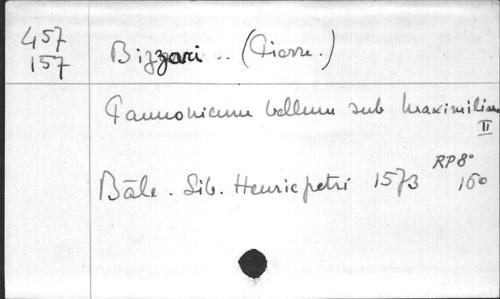 457
157
Bizzari .. (Pierre.)
Pannonicum bellum sub Maximilian
II
RP 8°
Bâle. Sib. Henricpetri 1573 160